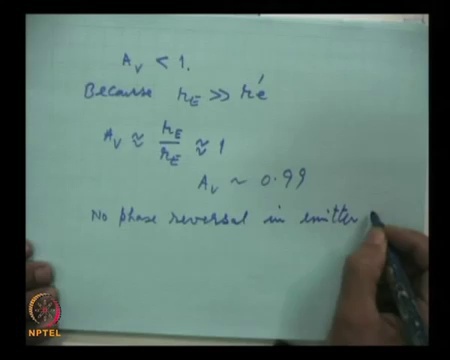 A_V < 1.
Because r_E >> r'e
A_V ≈ r_E / r_E ≈ 1
A_V ~ 0.99
No phase reversal in emitter
NPTEL